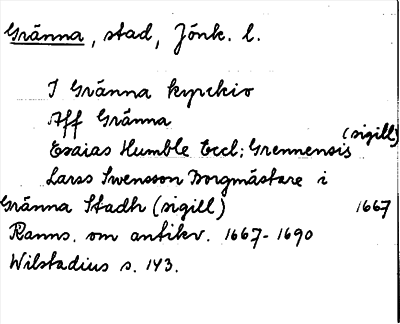 Gränna, stad, Jönk. l.
I Gränna kyrckio
Aff Gränna
Esaias Humble Eccl; Grennensis (sigill)
Larss Swensson Borgmästare i
Gränna Stadh (sigill) 1667
Ranns. om antikv. 1667-1690
Wilstadius s. 143.